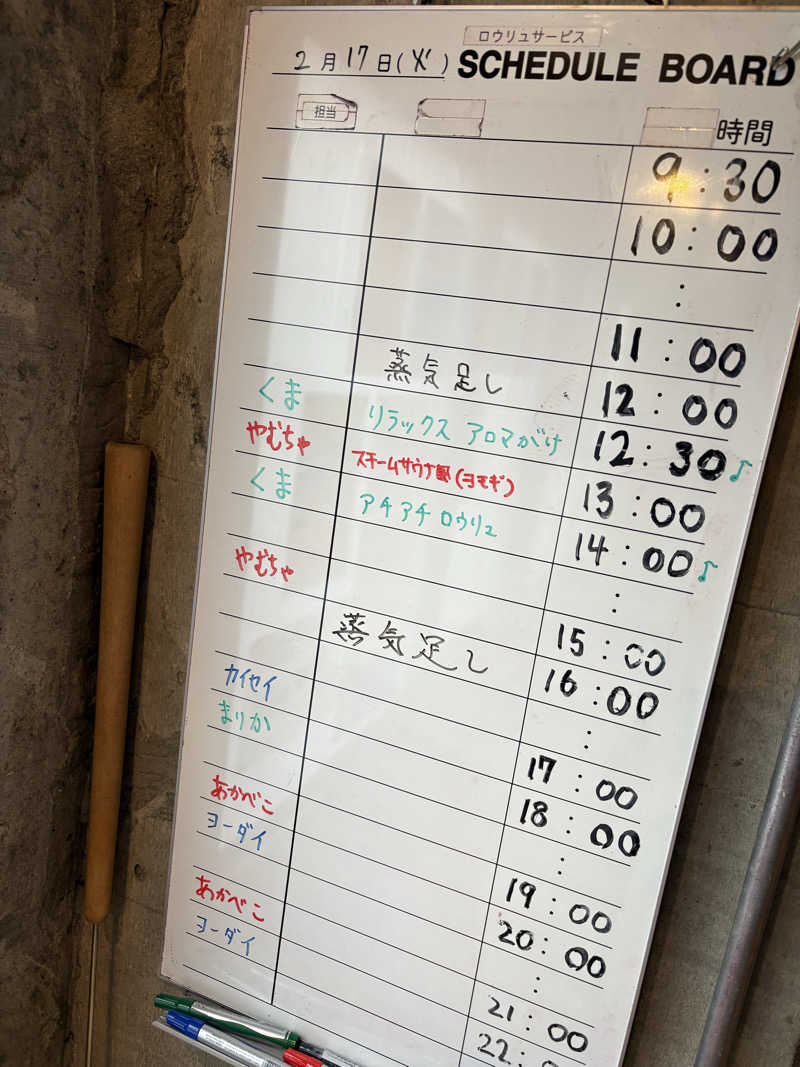 ロウリュサービス
2月17日(火) SCHEDULE BOARD
担当 時間
9:30
10:00
:
11:00
蒸気足し 12:00
くま リラックス アロマがけ 12:30♪
やむちゃ スチームサウナ (ヨモギ) 13:00
くま アチアチロウリュ 14:00♪
:
やむちゃ 15:00
蒸気足し 16:00
:
カイセイ 17:00
まりか 18:00
:
あかべこ 19:00
ヨーダイ 20:00
:
あかべこ 21:00
ヨーダイ 22: